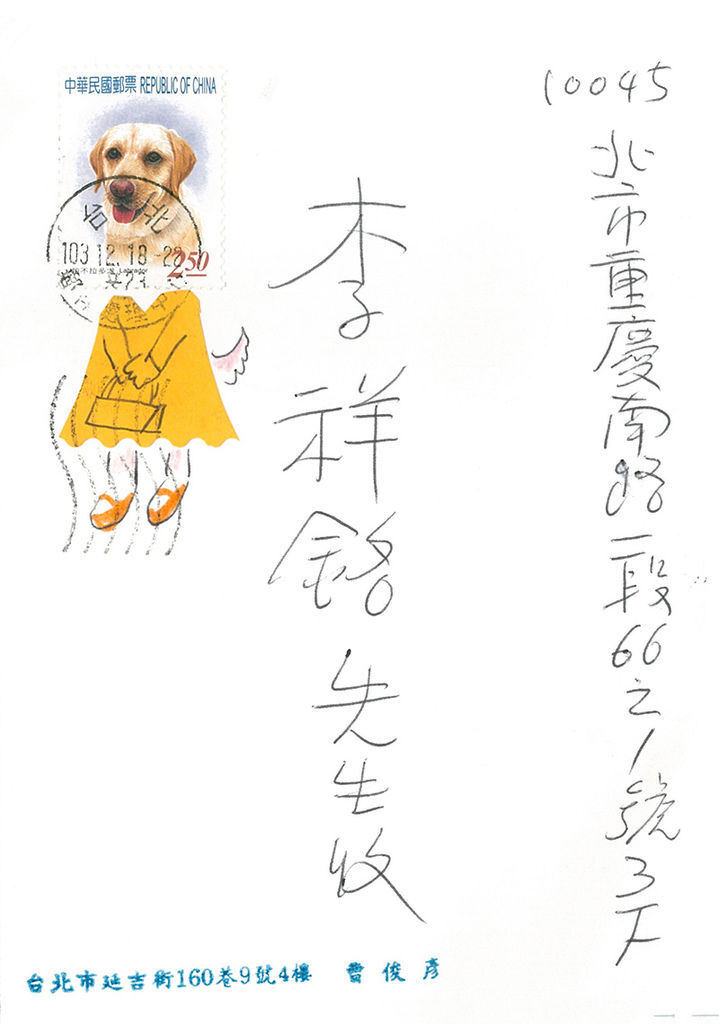 10045
北市重慶南路一段66之1號3F
李祥銘先生收
中華民國郵票 REPUBLIC OF CHINA
台北
103.12.18-28
250
台北市延吉街160巷9號4樓 曹俊彥